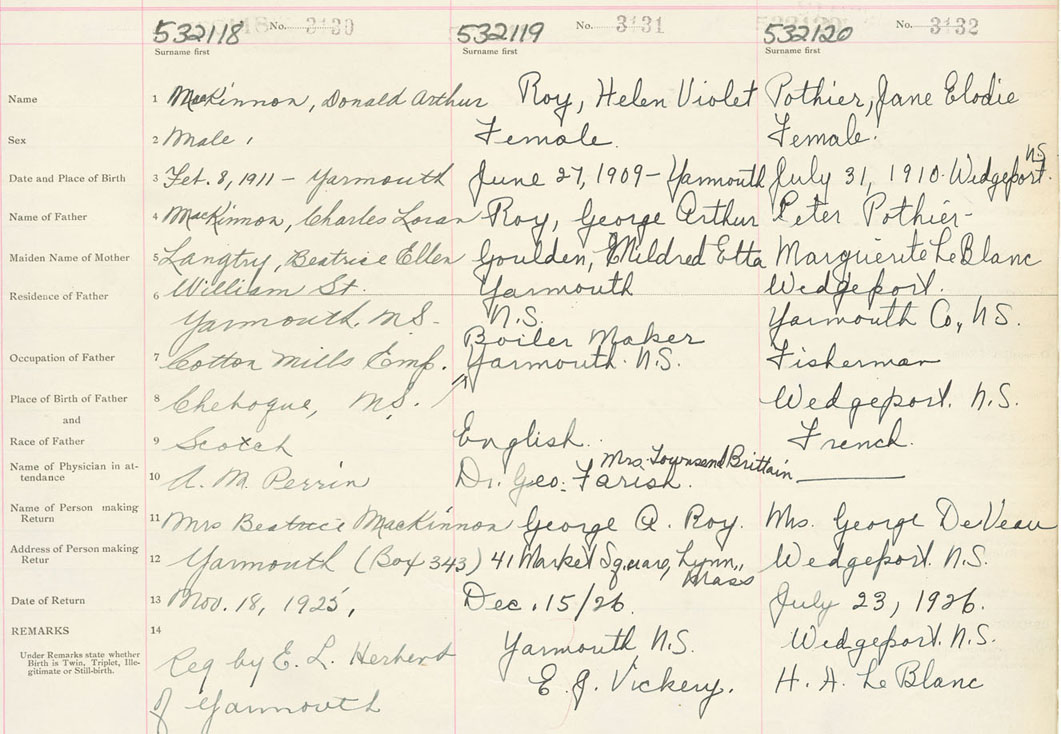 532118 No. 3130 532119 No. 3131 532120 No. 3132
Surname first Surname first Surname first
Name 1 MacKinnon, Donald Arthur Roy, Helen Violet Pothier, Jane Elodie
Sex 2 Male, Female. Female.
N.S.
Date and Place of Birth 3 Feb. 8, 1911 - Yarmouth June 27, 1909 - Yarmouth July 31, 1910. Wedgeport.
Name of Father 4 MacKinnon, Charles Loran Roy, George Arthur Peter Pothier -
Maiden Name of Mother 5 Langtry, Beatrice Ellen Goulden, Mildred Etta Marguerite LeBlanc
Residence of Father 6 William St. Yarmouth Wedgeport.
Yarmouth. N.S. N.S. Yarmouth Co., N.S.
Boiler Maker
Occupation of Father 7 Cotton Mills Emp. Yarmouth. N.S. Fisherman
Place of Birth of Father 8 Chebogue, N.S. Wedgeport. N.S.
and
Race of Father 9 Scotch English. French.
Name of Physician in at- Mrs. Townsend Brittain
tendance 10 A. M. Perrin Dr. Geo. Farish.
Name of Person making
Return 11 Mrs Beatrice MacKinnon George A. Roy. Mrs. George DeVeau
Address of Person making
Retur 12 Yarmouth (Box 343) 41 Market Square, Lynn, Wedgeport. N.S.
Mass
Date of Return 13 Nov. 18, 1925, Dec. 15/26. July 23, 1926.
REMARKS 14 Yarmouth N.S. Wedgeport. N.S.
Under Remarks state whether
Birth is Twin, Triplet, Ille-
gitimate or Still-birth.
Reg by E. L. Herbert E. J. Vickery. H. A. LeBlanc
of Yarmouth